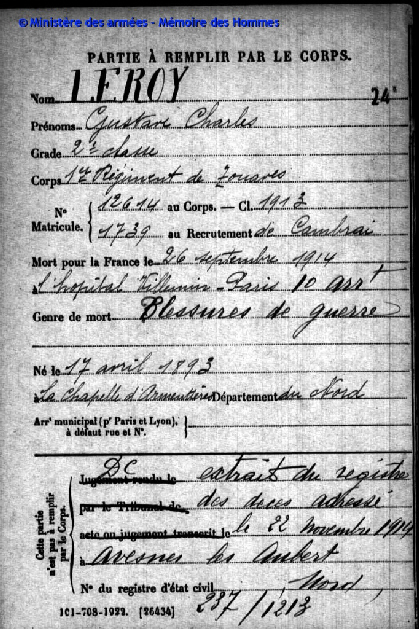 © Ministère des armées - Mémoire des Hommes
PARTIE À REMPLIR PAR LE CORPS.
Nom LEROY
24
Prénoms Gustave Charles
Grade 2e classe
Corps 1er Régiment de Zouaves
N° Matricule. 12614 au Corps. — Cl. 1913
1739 au Recrutement de Cambrai
Mort pour la France le 26 septembre 1914
à l'hopital Villemin - Paris 10 arrt
Genre de mort Blessures de guerre
Né le 17 avril 1893
à La Chapelle d'Armentières Département du Nord
Arrt municipal (pr Paris et Lyon), à défaut rue et N°.
Cette partie n'est pas à remplir par le Corps.
Jugement rendu le Dc extrait du registre
par le Tribunal de des deces adressé
acte ou jugement transcrit le le 22 novembre 1914
à Avesnes les Aubert
Nord
N° du registre d'état civil
237/1213
101-708-1922. [26434]